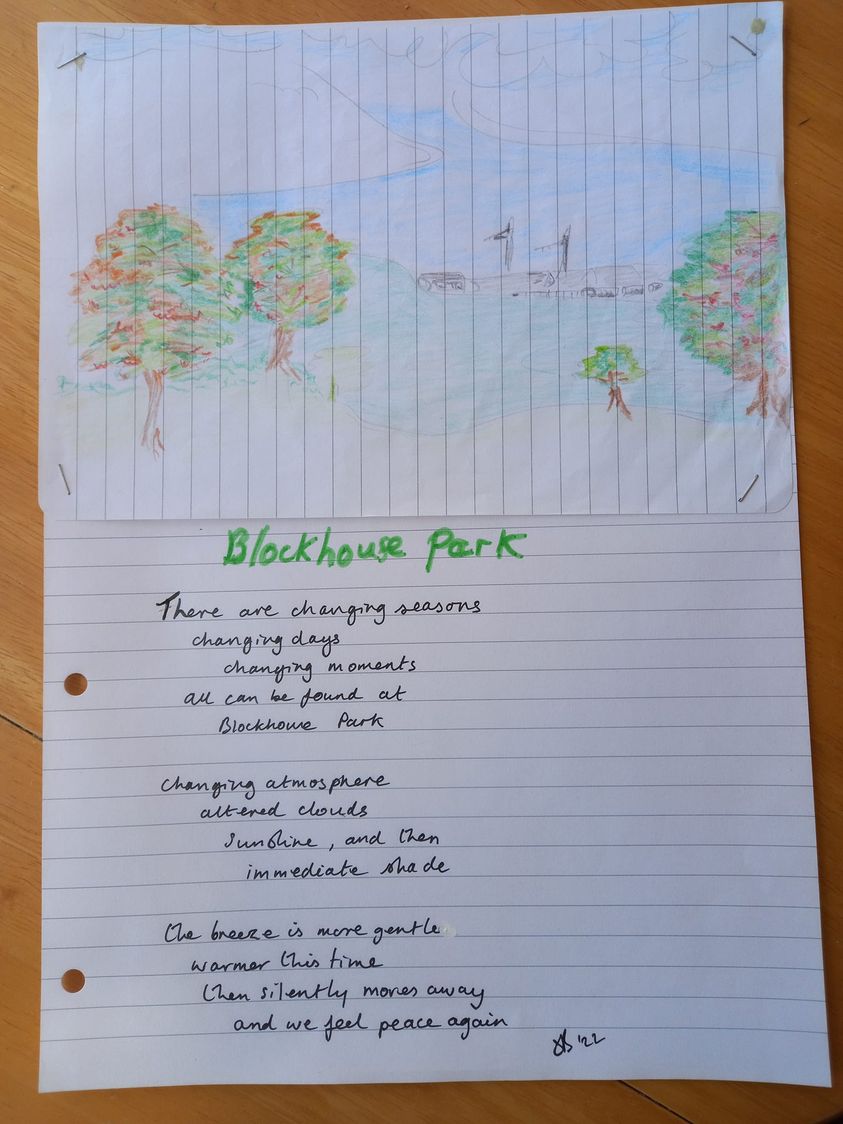 Blockhouse Park
There are changing seasons
changing days
changing moments
all can be found at
Blockhouse Park
Changing atmosphere
altered clouds
sunshine, and then
immediate shade
the breeze is more gentle
warmer this time
then silently moves away
and we feel peace again
'22